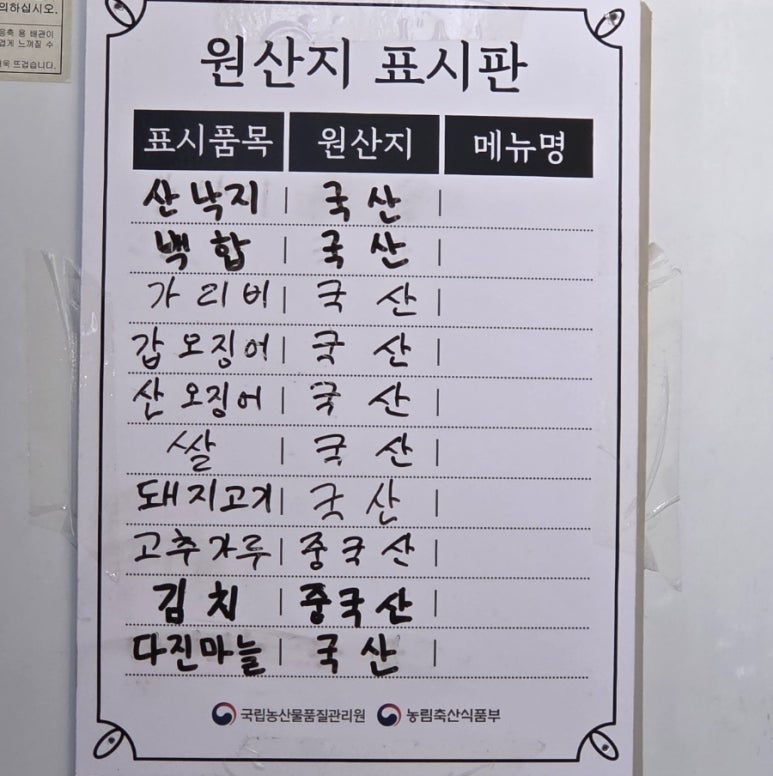 의하십시오.
응축 용 배관이
겁게 느껴질 수
더욱 뜨겁습니다.
원산지 표시판
표시품목 원산지 메뉴명
산낙지 국산
백합 국산
가리비 국산
갑오징어 국산
산오징어 국산
쌀 국산
돼지고기 국산
고추가루 중국산
김치 중국산
다진마늘 국산
국립농산물품질관리원 농림축산식품부